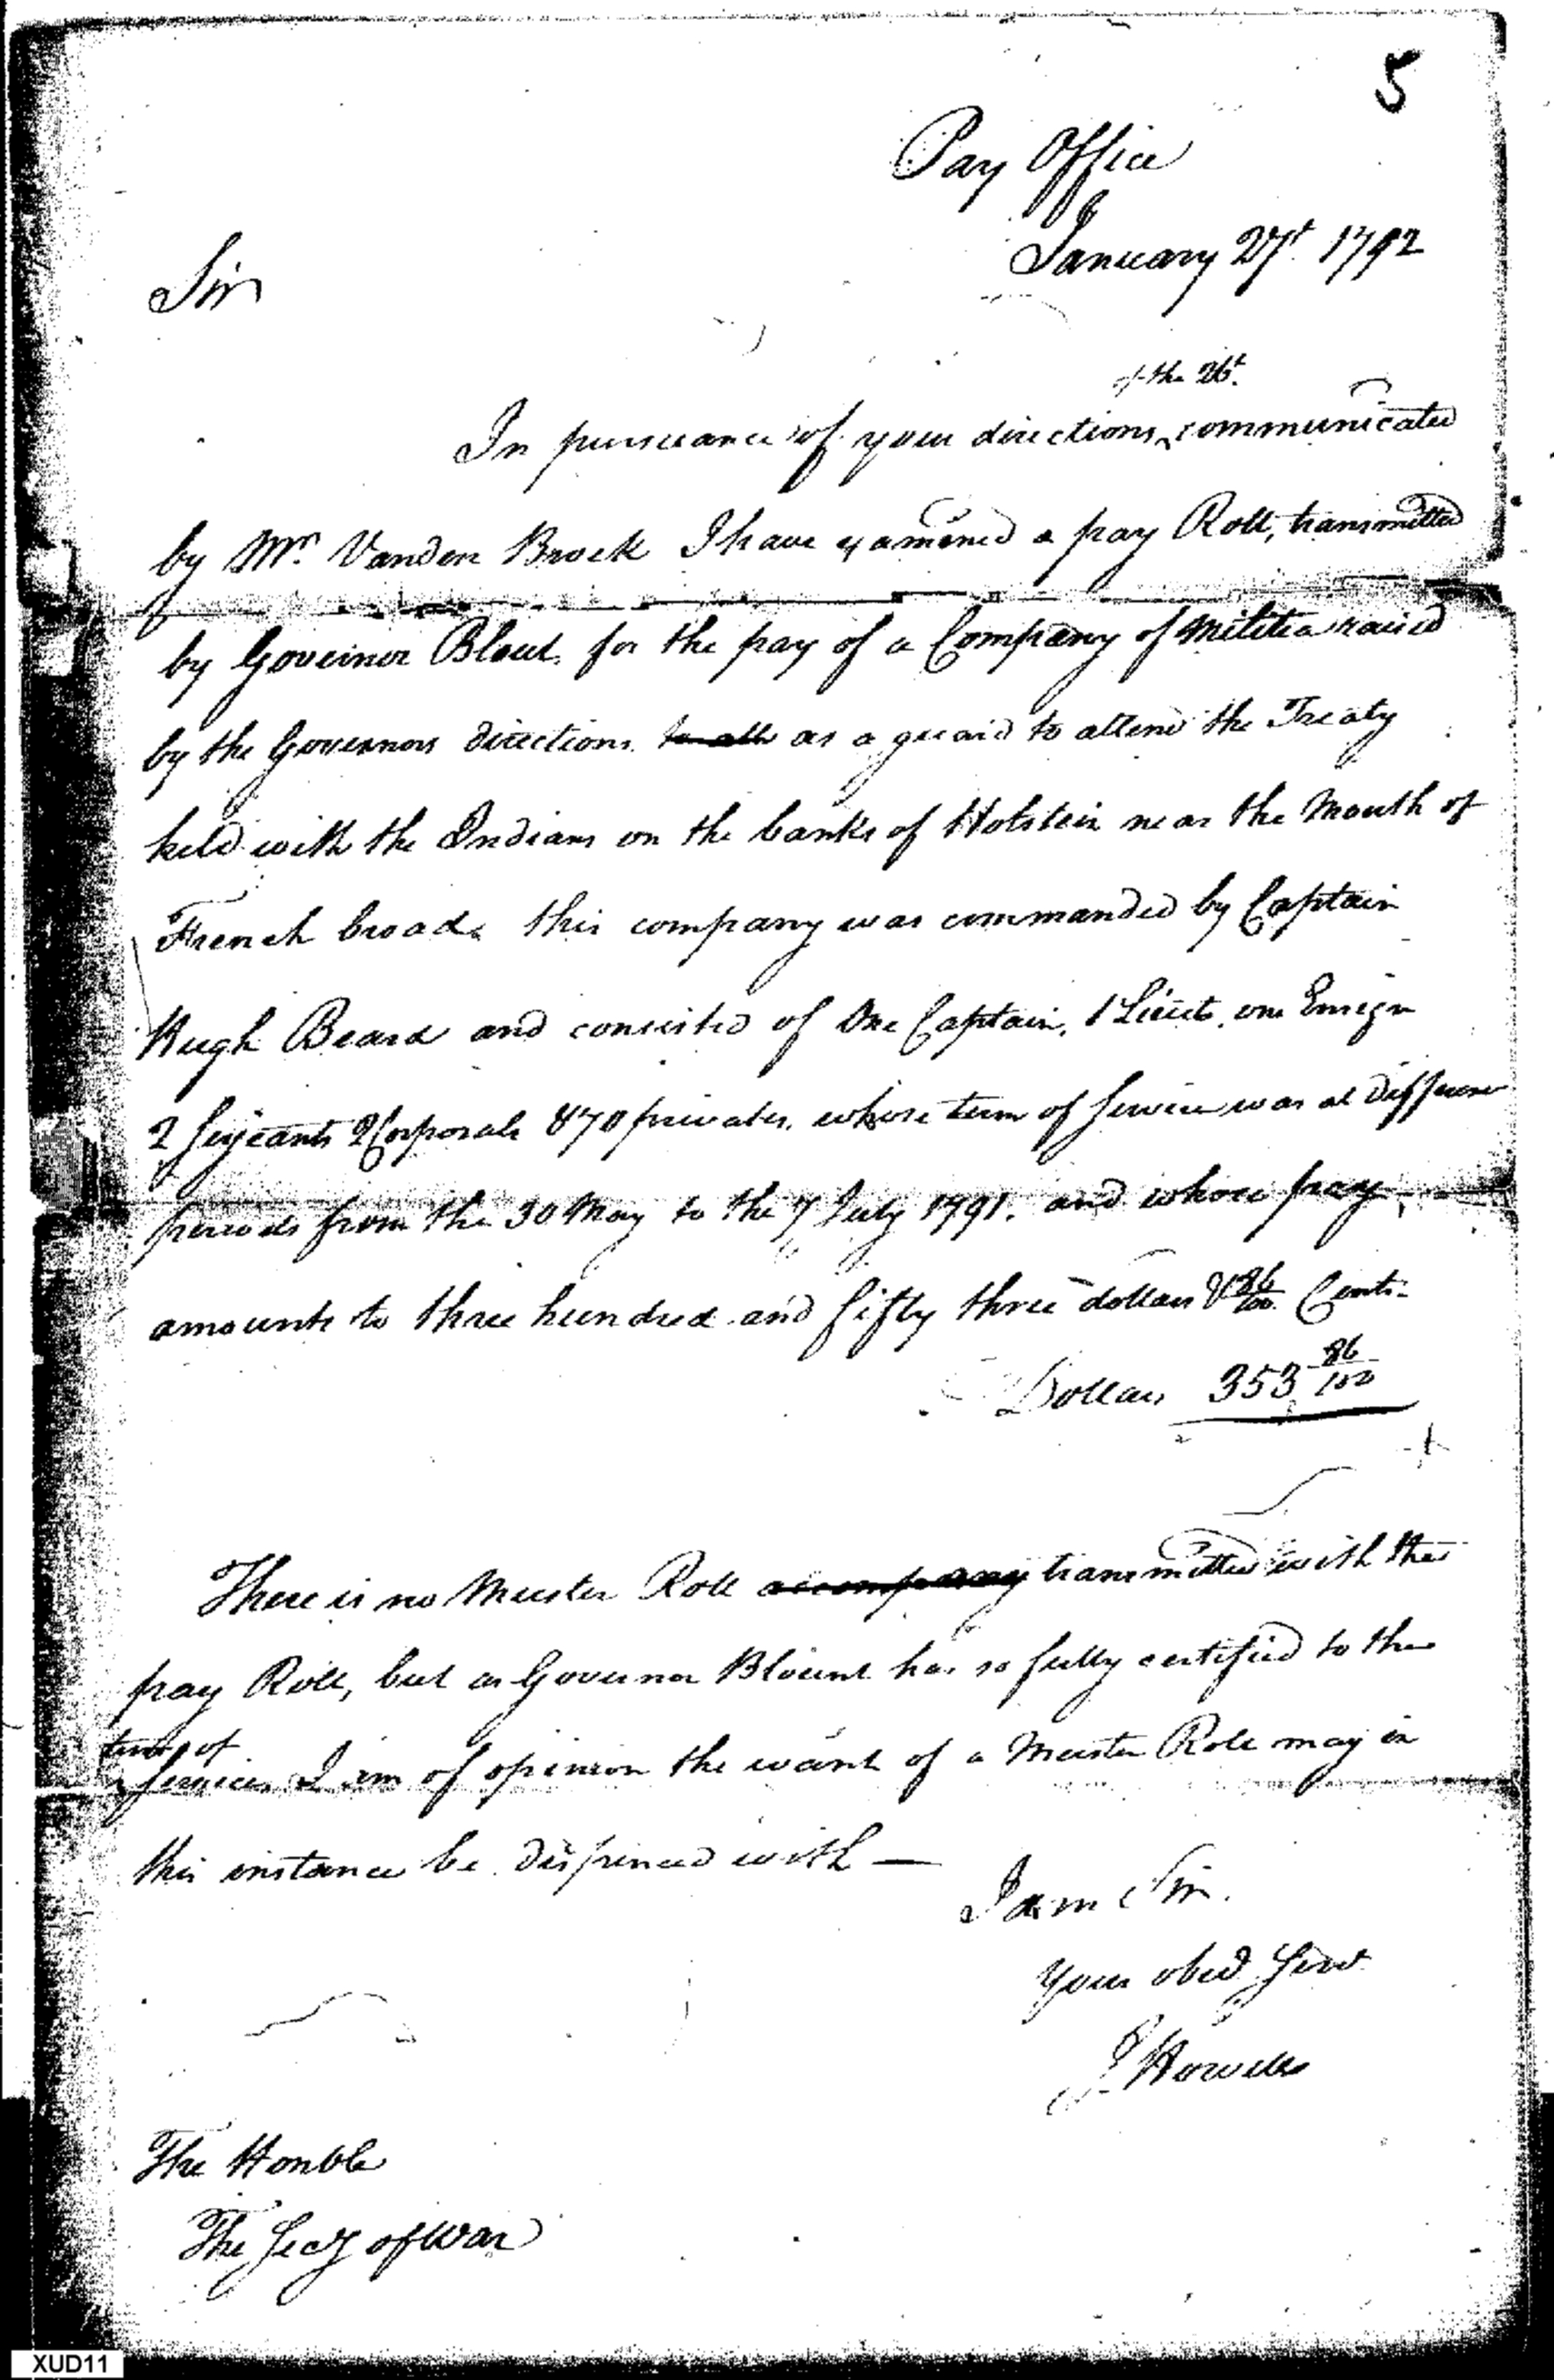 5
Pay Office
January 27t. 1792
Sir
of the 26t.
In pursuance of your directions communicated
by Mr. Vanden Brock I have examened a pay Roll, transmitted
by Governor Blout, for the pay of a Company of Militia raised
by the Governors directions to att as a guard to attend the Treaty
held with the Indians on the banks of Holstein near the Mouth of
French broad. this company was commanded by Captain
Hugh Beard and consisted of One Captain, 1 Lieut. one Ensign
2 Serjeants 2 Corporals & 70 privates. whose term of service was at different
periods from the 30 May to the 7 July 1791. and whose pay
amounts to three hundred and fifty three dollars & 86/100 Cents.
Dollars 353 86/100
There is no Muster Roll accompany transmitted with the
pay Roll, but as Governor Blount has so fully certified to the
of
Services I am of opinion the want of a Muster Roll may in
this instance be dispenced with —
I am Sir.
Your obed. Servt
J Howell
The Honble
The Secy of War
XUD11